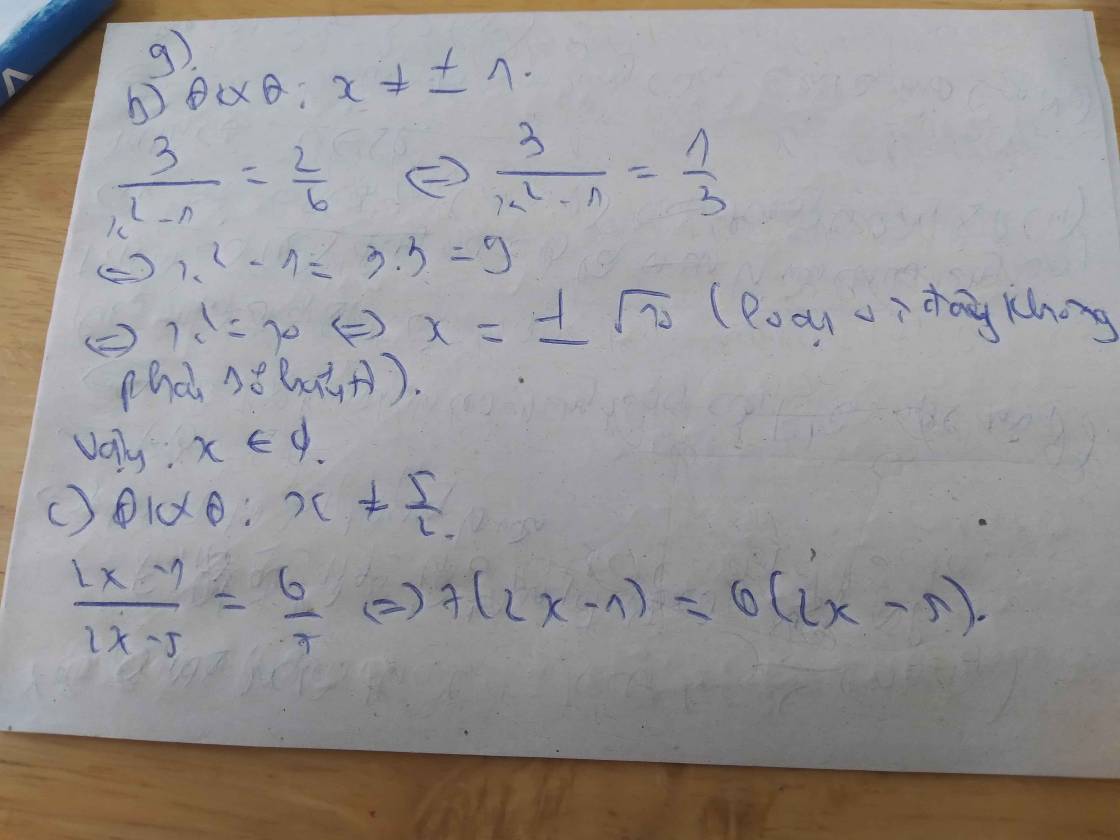 9).
b) ĐKXĐ: x ≠ ± 1.
3/(x² - 1) = 2/6 <=> 3/(x² - 1) = 1/3
<=> x² - 1 = 3.3 = 9
<=> x² = 10 <=> x = ± √10 (loại vì đây không
phải số hữu tỉ).
Vậy: x ∈ ∅.
c) ĐKXĐ: x ≠ 5/2.
(2x - 1)/(2x - 5) = 6/7 <=> 7(2x - 1) = 6(2x - 5).